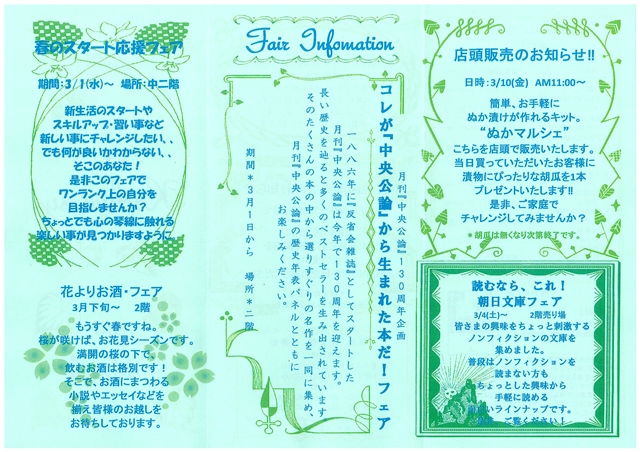 春のスタート応援フェア
期間：3/1(水)～　場所：中二階
新生活のスタートや
スキルアップ・習い事など
新しい事にチャレンジしたい、、
でも何が良いかわからない、、
そこのあなた！
是非このフェアで
ワンランク上の自分を
目指しませんか？
ちょっとでも心の琴線に触れる
楽しい事が見つかりますように。
花よりお酒・フェア
3月下旬～　2階
もうすぐ春ですね。
桜が咲けば、お花見シーズンです。
満開の桜の下で、
飲むお酒は格別です！
そこで、お酒にまつわる
小説やエッセイなどを
揃え皆様のお越しを
お待ちしております。
Fair Infomation
月刊『中央公論』130周年企画
コレが『中央公論』から生まれた本だ！フェア
一八八六年に『反省会雑誌』としてスタートした
月刊『中央公論』は今年で130周年を迎えます。
長い歴史を辿ると多くのベストセラーが生み出されています
そのたくさんの本の中から選りすぐりの名作を一同に集め、
月刊『中央公論』の歴史年表パネルとともに
お楽しみください。
期間＊3月1日から　場所＊二階
店頭販売のお知らせ!!
日時：3/10(金)　AM11:00～
簡単、お手軽に
ぬか漬けが作れるキット。
“ぬかマルシェ”
こちらを店頭で販売いたします。
当日買っていただいたお客様に
漬物にぴったりな胡瓜を1本
プレゼントいたします！
是非、ご家庭で
チャレンジしてみませんか？
＊胡瓜は無くなり次第終了です。
読むなら、これ！
朝日文庫フェア
3/4(土)～　2階売り場
皆さまの興味をちょっと刺激する
ノンフィクションの文庫を
集めました。
普段はノンフィクションを
読まない方も
ちょっとした興味から
手軽に読める
ラインナップです。
ご覧ください！